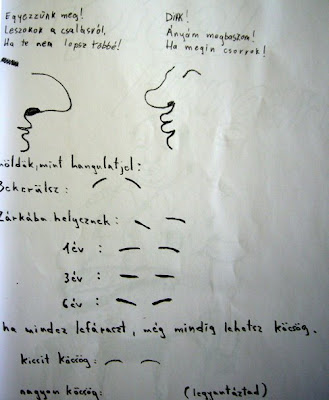 Egyezzünk meg!
Leszokok a csalásról,
Ha te nem lopsz többé!
Dikk!
Anyám megbaszom!
Ha megin csorrok!
mint hangulatjel:
Bekerülsz:
Zárkába helyeznek:
1 év:
3 év:
6 év:
ha mindez lefáraszt, még mindig lehetsz köcsög.
kicsit köcsög:
nagyon köcsög:
(legyantáztad)